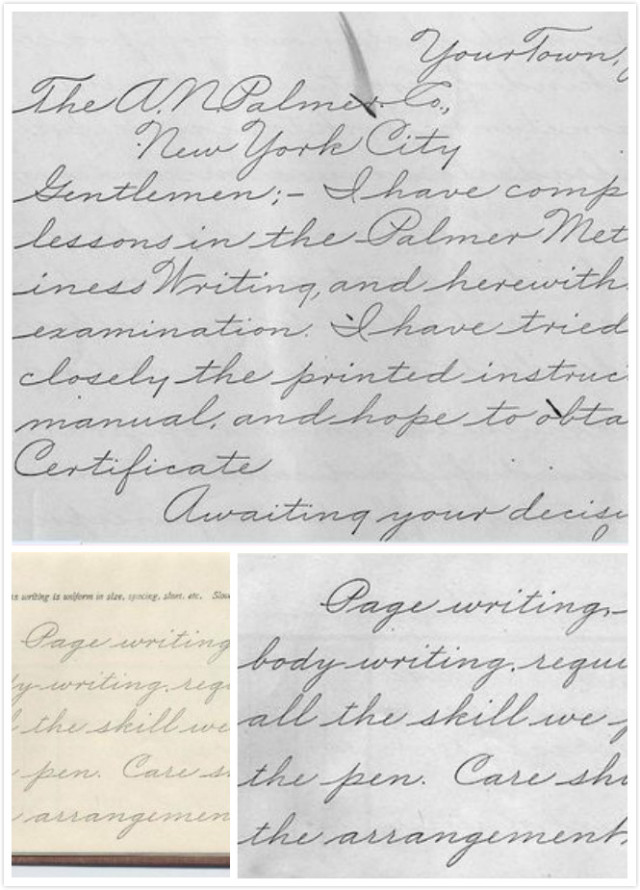 Your Town,
The A. N. Palmer Co.,
New York City
Gentlemen;- I have comp
lessons in the Palmer Met
iness Writing, and herewith
examination. I have tried
closely the printed instruc
manual, and hope to obta
Certificate
Awaiting your decis
writing is uniform in size, spacing, slant, etc.
Page writing
y writing, requ
the skill we
pen. Care s
arrangemen
Page writing,-
body writing, requi
all the skill we
the pen. Care sho
the arrangement,